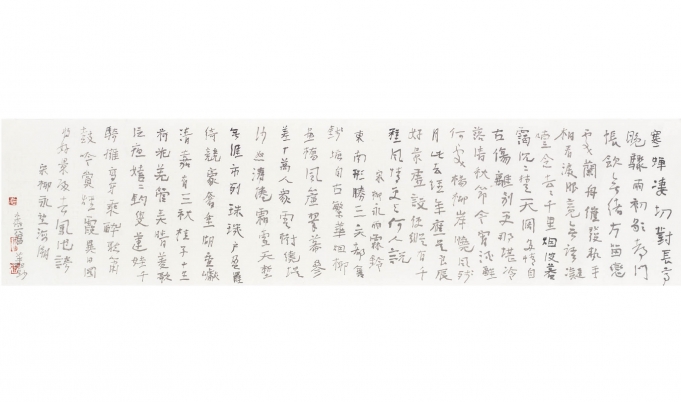 寒蟬淒切對長亭
晚驟雨初歇都門
帳飲無緒方留戀
處蘭舟催發執手
相看淚眼竟無語凝
噎念去去千里烟波暮
靄沉沉楚天闊多情自
古傷離別更那堪冷
落清秋節今宵酒醒
何處楊柳岸曉風殘
月此去經年應是良辰
好景虛設便縱有千
種風情更与何人說
宋柳永雨霖鈴
東南形勝三吳都會
錢塘自古繁華烟柳
畫橋風簾翠幕參
差十萬人家雲樹繞堤
沙怒濤卷霜雪天塹
無涯市列珠璣戶盈羅
綺競豪奢重湖疊巘
清嘉有三秋桂子十里
荷花羌管弄晴菱歌
泛夜嬉嬉釣叟蓮娃千
騎擁高牙乘醉聽簫
鼓吟賞烟霞異日圖
將好景歸去鳳池誇
宋柳永望海潮